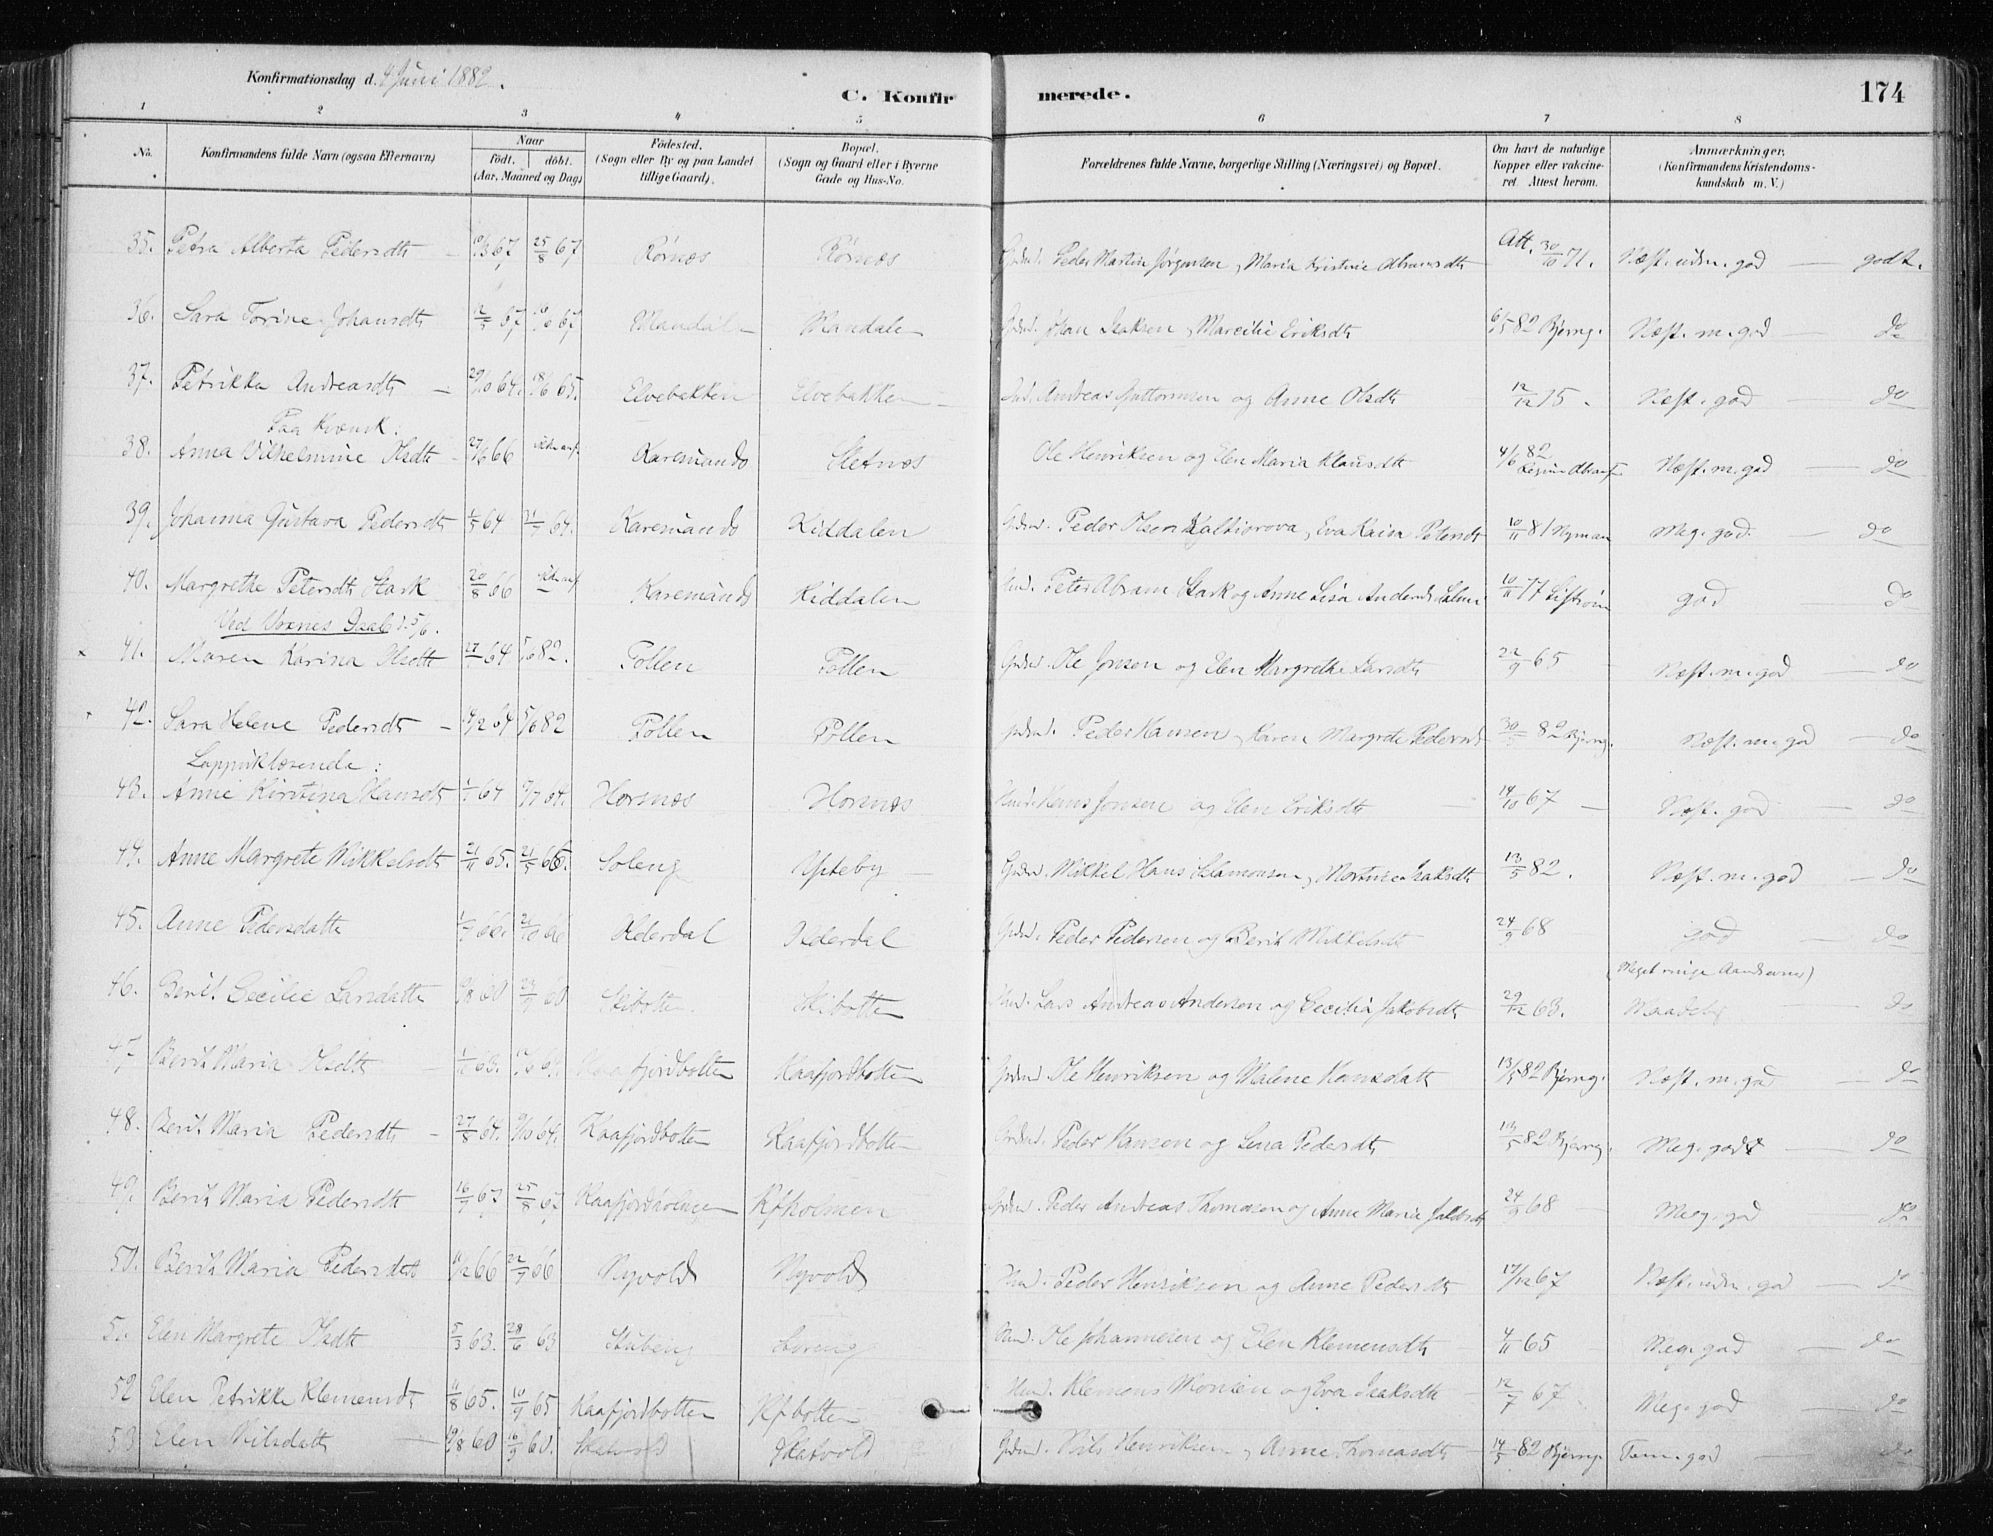 Konfirmationsdag d. 4 Juni 1882.
C. Konfir merede. 174
1 2 3 4 5 6 7 8
No. Konfirmandens fulde Navn (ogsaa Efternavn) Naar født. døbt. (Aar, Maaned og Dag) Fødested. (Sogn eller By og paa Landet tillige Gaard). Bopæl. (Sogn og Gaard eller i Byerne Gade og Hus-No. Forældrenes fulde Navne, borgerlige Stilling (Næringsvei) og Bopæl. Om havt de naturlige Kopper eller vakcineret. Attest herom. Anmærkninger. (Konfirmandens Kristendomskundskab m. V.)
35. Petra Alberta Pedersdt 67 25/8 67 Rörnæs Rörnæs Peder Martin Jørgensen, Maria Kristine Abramsdt Att. 30/10 71. Næst. udm. god — godt.
36. Sara Torine Johansdt 12/5 67 67 Mandalen Mandalen Johan Isaksen, Marcilie Eriksdt 6/5 82 Bjerng. Næst. m. god do
37. Petrikka Andreasdt 29/10 64. 18/6 65. Elvebakken Elvebakken Andreas Guttormsen og Anne Olsdt 12/12 75. Næst. god — do
Paa Kvænsk:
38. Anna Vilhelmine Olsdt 27/6 66 Karesuando Sletnæs Ole Henriksen og Elen Maria Klausdt 4/6 82 Næst. m. god — do
39. Johanna Gustava Pedersdt 1/5 64 64. Karesuando Kiddalen Peder Olsen, Eva Kaisa Petersdt 10/11 81 Nyman Meg. god. — do
40. Margrethe Petersdt Stark 20/8 66 Karesuando Kiddalen Peter Abram Stark og Anne Lisa Andersdt 10/11 77 god — do
Ved Voxnes Daab d. 5/6.
41. Maren Karina Olsdt 64 5/6 82. Pollen Pollen Ole Jonsen og Elen Margrethe Larsdt 22/9 65 Næst. m. god — do
42. Sara Helene Pedersdt — 64 5/6 82 Pollen Pollen Peder Hansen, Karen Margrete Pedersdt 82 Bjerng. Næst. m. god — do
Lappisklæsende:
43. Anne Kirstina Hansdt 64 64. Horsnæs Horsnæs Hans Jonsen og Elen Eriksdt 14/10 67 — Næst. god — do
44. Anne Margrete Mikkelsdt 21/11 65. 21/5 66. Soleng Ysteby Mikkel Hans Salamonsen, Isaksdt 13/5 82. Næst. m. god — do
45. Anne Pedersdatter 66. 21/10 66 Olderdal Olderdal Peder Pedersen og Berit Mikkelsdt 24/9 68 god — do
(Meget ringe Aandsevner)
46. Berit Cecilie Larsdatter 60 23/9 60 Skibotten Skibotten Lars Andreas Andersen og Cecilia Jakobsdt 29/12 63. Maadelig — do
47. Berit Maria Olsdt 63. Kaafjordbotten Kaafjordbotten Ole Henriksen og Malene Hansdatter 13/5 82 Bjerng. Næst. m. god — do
48. Berit Maria Pedersdt — 27/8 64. 9/10 64. Kaafjordbotten Kaafjordbotten Peder Hansen og Lena Pedersdt 13/5 82 Bjerng. Meg. godt — do
49. Berit Maria Pedersdt 16/7 67 25/8 67 Kaafjordholmen Kfholmen Peder Andreas Thomasen og Anne Maria 24/9 68 — Meg. god do
50. Berit Maria Pedersdatt 11/2 66 22/7 66 Nyvold Nyvold Peder Henriksen og Anne Pedersdt 17/12 67 Næst. udm. god — do
51. Elen Margrete Olsdt 5/3 63. 28/6 63 Ole Johannesen og Elen Klemensdt 4/11 65 Meg. god — do
52 Elen Petrikke Klemensdt 11/8 65. 10/9 65 Kaafjordbotten Kfbotten Klemens Monsen og Eva Isaksdt 12/7 67 Meg. god — do
53 Elen Nilsdatt 60 16/9 60. Skatvold Skatvold Nils Henriksen, Anne Thomasdt 14/5 82 Bjerng. Tem. god do